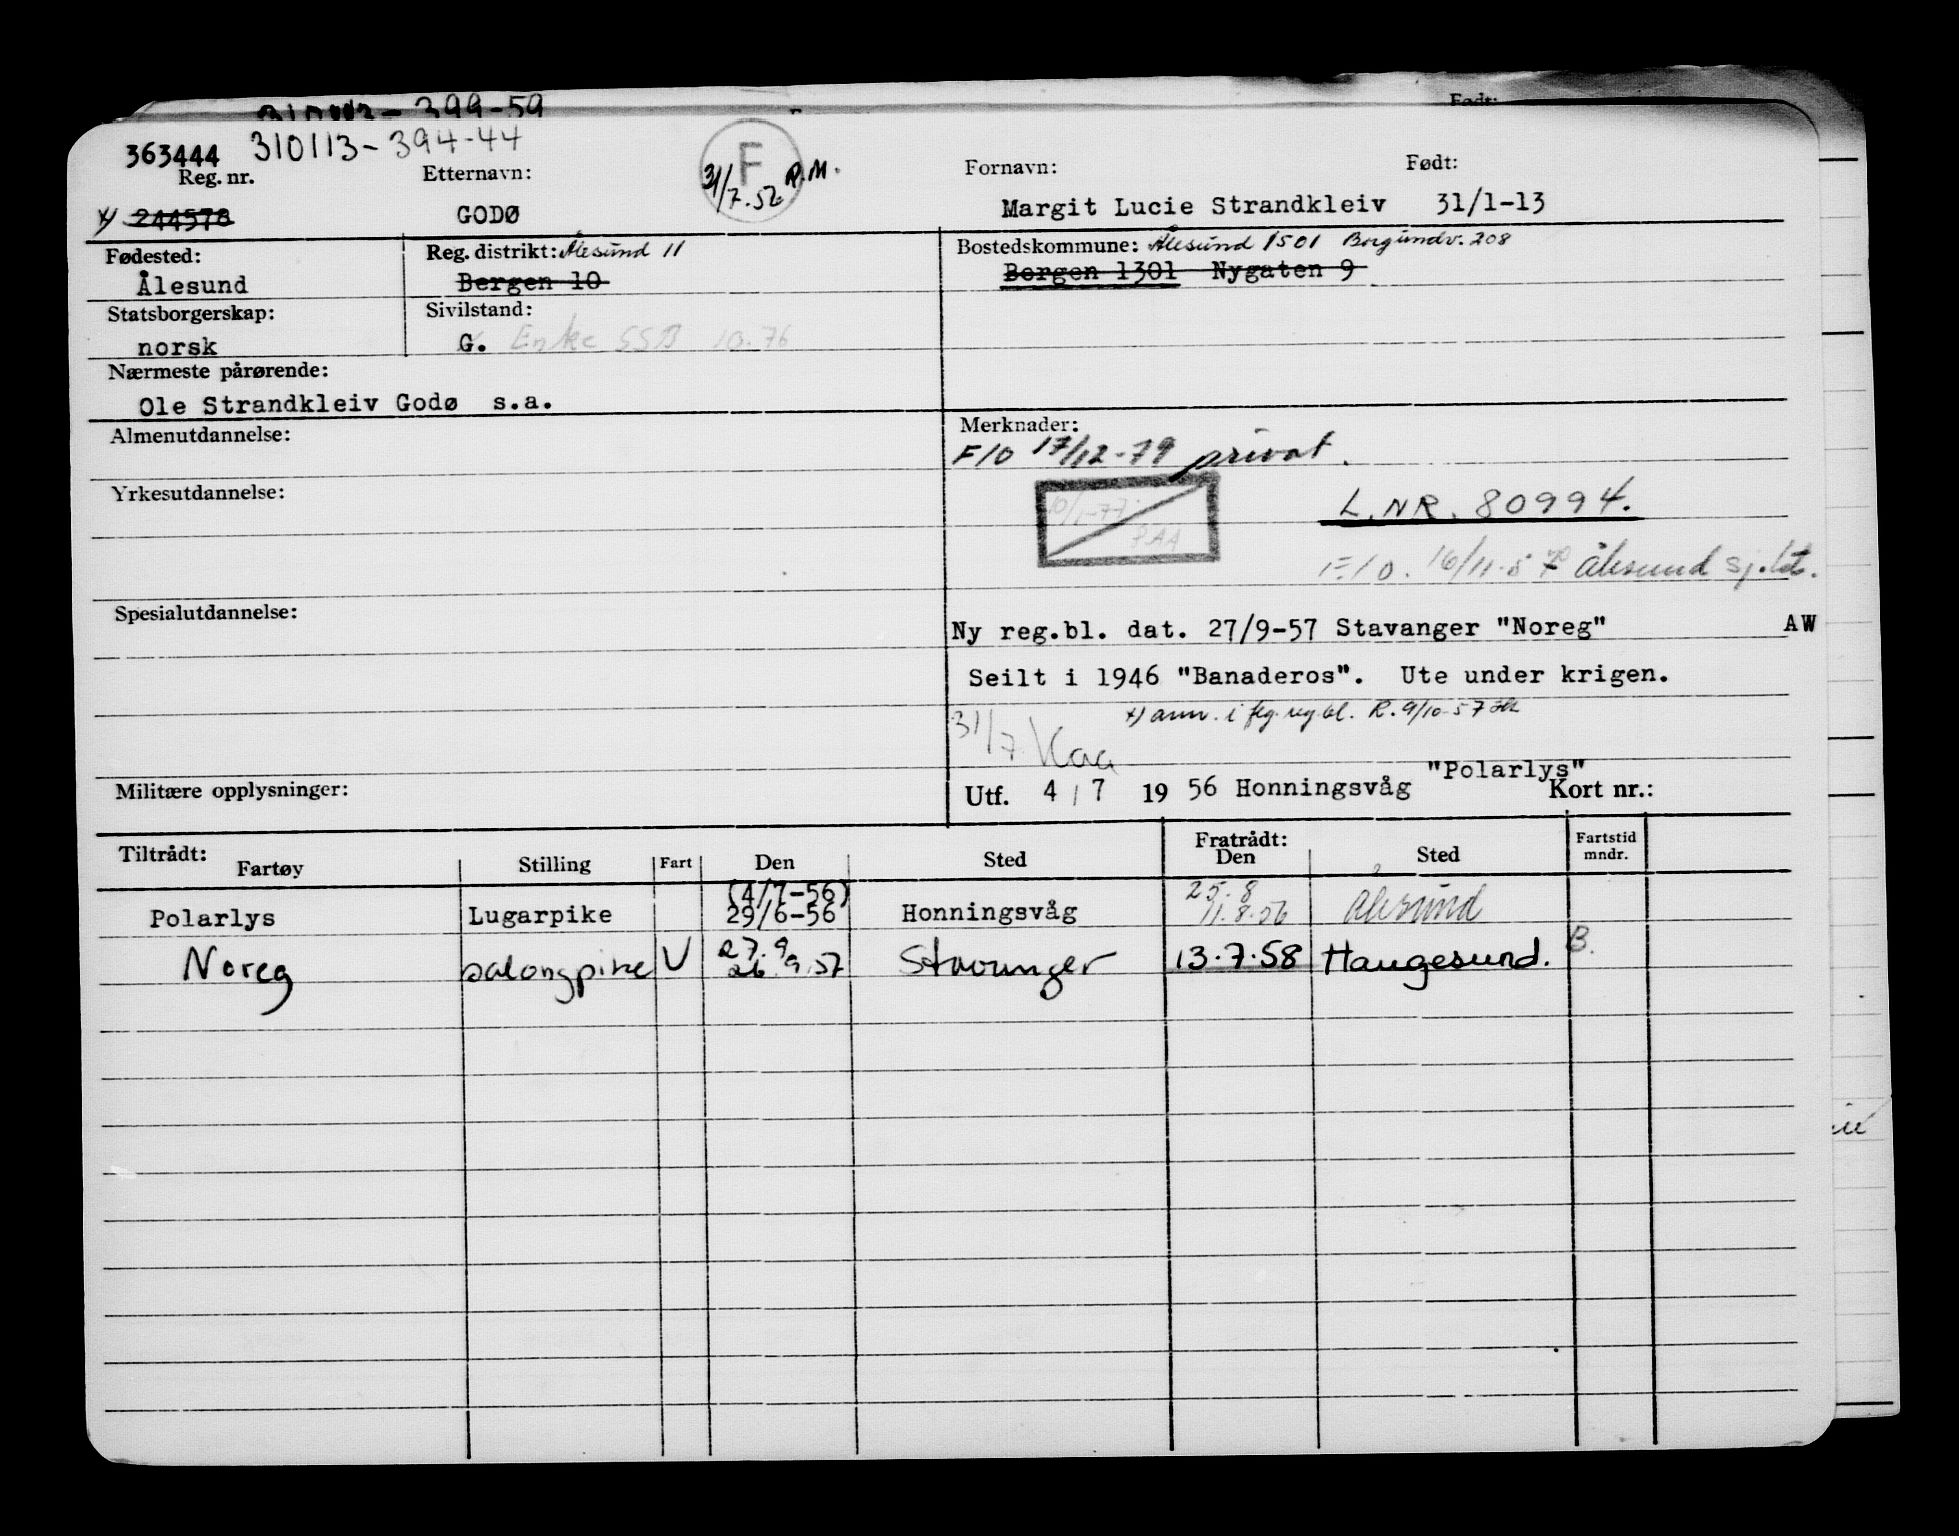 399-59
Født:
363444 310113-394-44
Reg. nr. Etternavn: F 31/7.56 R.M. Fornavn: Født:
x) 244578 GODØ Margit Lucie Strandkleiv 31/1-13
Fødested: Reg. distrikt: Ålesund 11 Bostedskommune: Ålesund 1501 Borgundv. 208
Ålesund Bergen 10 Bergen 1301 Nygaten 9
Statsborgerskap: Sivilstand:
norsk G. Enke SSB 10.76
Nærmeste pårørende:
Ole Strandkleiv Godø s.a.
Almenutdannelse: Merknader:
F/O 17/12-79 privat.
Yrkesutdannelse: 10/1-77 L.NR. 80994.
F/O. 16/11-5 Ålesund sj.
Spesialutdannelse:
Ny reg.bl. dat. 27/9-57 Stavanger "Noreg" AW
Seilt i 1946 "Banaderos". Ute under krigen.
x) ann. i flg. reg.bl. R. 9/10-57
31/7 Kaa
"Polarlys"
Militære opplysninger: Utf. 4/7 1956 Honningsvåg Kort nr.:
Tiltrådt: Fratrådt: Fartstid
Fartøy Stilling Fart Den Sted Den Sted mndr.
(4/7-56) 25.8
Polarlys Lugarpike 29/6-56 Honningsvåg 11.8.56 Ålesund
27.9 B.
Noreg salongpike V 26.9.57 Stavanger 13.7.58 Haugesund.